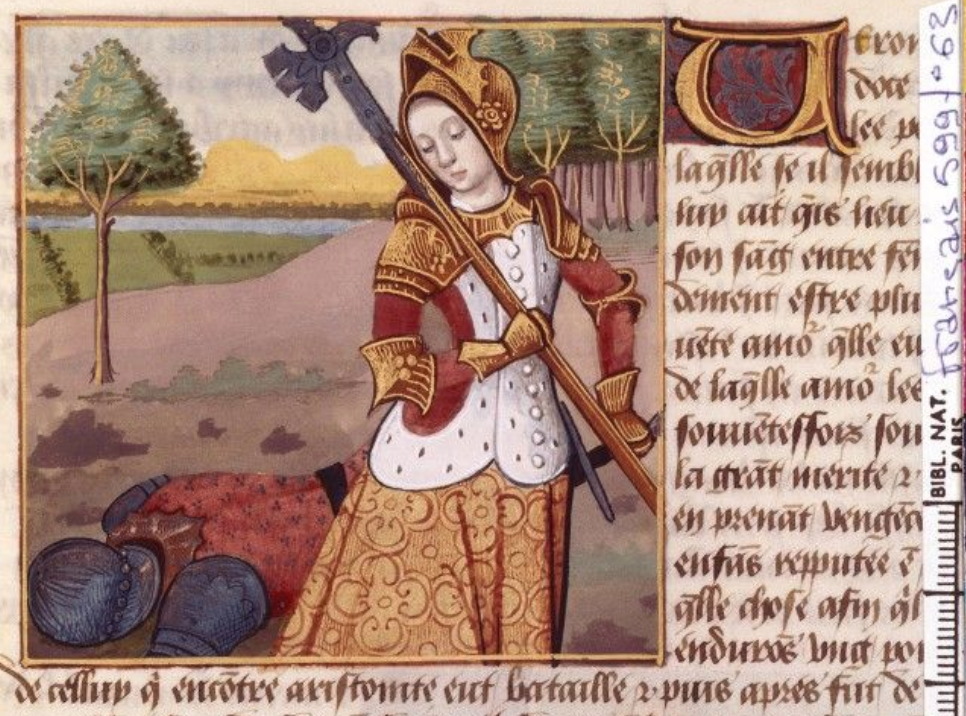 doce
lee
laq̃lle se il sembl
luy ait q̃is lieu
son sãg entre fem
dement estre plu
uẽte amor̃ q̃lle eu
de laq̃lle amor̃ les
souuẽteffois sou
la grãt merite ⁊
en prenãt vengẽce
enfãs repputee ẽ
q̃lle chose afin q̃l
endurõs vng poi
de celluy q̃ encõtre aristomte eut bataille ⁊ puis apres fut de
français 599 fº 63
BIBL. NAT.
PARIS